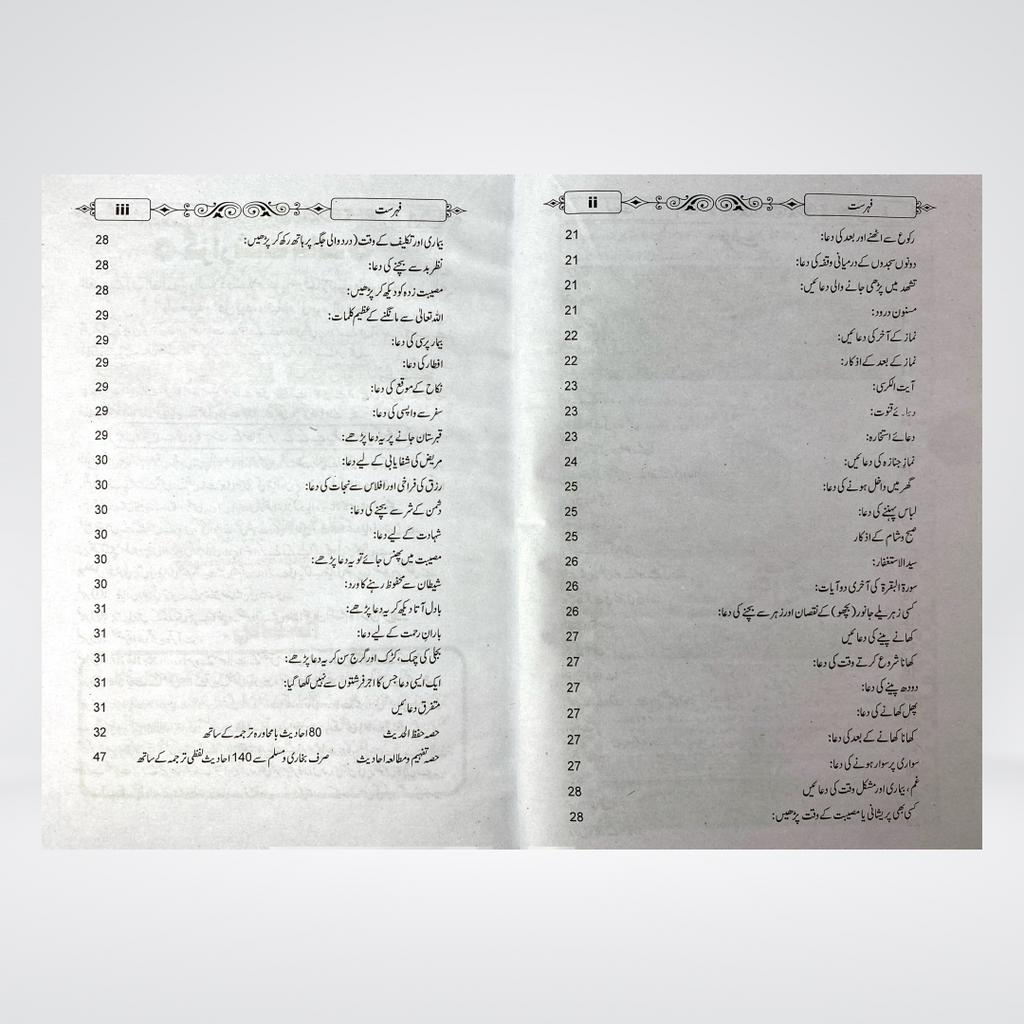 فہرست ii
رکوع سے اٹھنے اور بعد کی دعا: 21
دونوں سجدوں کے درمیانی وقفہ کی دعا: 21
تشھد میں پڑھی جانے والی دعائیں: 21
مسنون درود: 21
نماز کے آخر کی دعائیں: 22
نماز کے بعد کے اذکار: 22
آیت الکرسی: 23
دعائے قنوت: 23
دعائے استخارہ: 23
نماز جنازہ کی دعائیں: 24
گھر میں داخل ہونے کی دعا: 25
لباس پہننے کی دعا: 25
صبح وشام کے اذکار 25
سید الاستغفار: 26
سورۃ البقرۃ کی آخری دو آیات: 26
کسی زہریلے جانور (بچھو) کے نقصان اور زہر سے بچنے کی دعا: 26
کھانے پینے کی دعائیں 27
کھانا شروع کرتے وقت کی دعا: 27
دودھ پینے کی دعا: 27
پھل کھانے کی دعا: 27
کھانا کھانے کے بعد کی دعا: 27
سواری پر سوار ہونے کی دعا: 27
غم، بیماری اور مشکل وقت کی دعائیں 28
کسی بھی پریشانی یا مصیبت کے وقت پڑھیں: 28
فہرست iii
بیماری اور تکلیف کے وقت (درد والی جگہ پر ہاتھ رکھ کر پڑھیں: 28
نظر بد سے بچنے کی دعا: 28
مصیبت زدہ کو دیکھ کر پڑھیں: 28
اللہ تعالیٰ سے مانگنے کے عظیم کلمات: 29
بیمار پرسی کی دعا: 29
افطار کی دعا: 29
نکاح کے موقع کی دعا: 29
سفر سے واپسی کی دعا: 29
قبرستان جانے پر یہ دعا پڑھے: 29
مریض کی شفایابی کے لیے دعا: 30
رزق کی فراخی اور افلاس سے نجات کی دعا: 30
دشمن کے شر سے بچنے کی دعا: 30
شہادت کے لیے دعا: 30
مصیبت میں پھنس جائے تو یہ دعا پڑھے: 30
شیطان سے محفوظ رہنے کا ورد: 30
بادل آتا دیکھ کر یہ دعا پڑھے: 31
باران رحمت کے لیے دعا: 31
بجلی کی چمک، کڑک اور گرج سن کر یہ دعا پڑھے: 31
ایک ایسی دعا جس کا اجر فرشتوں سے نہیں لکھا گیا: 31
متفرق دعائیں 31
حصہ حفظ الحدیث 80 احادیث بامحاورہ ترجمہ کے ساتھ 32
حصہ تفہیم ومطالعہ احادیث صرف بخاری ومسلم سے 140 احادیث لفظی ترجمہ کے ساتھ 47